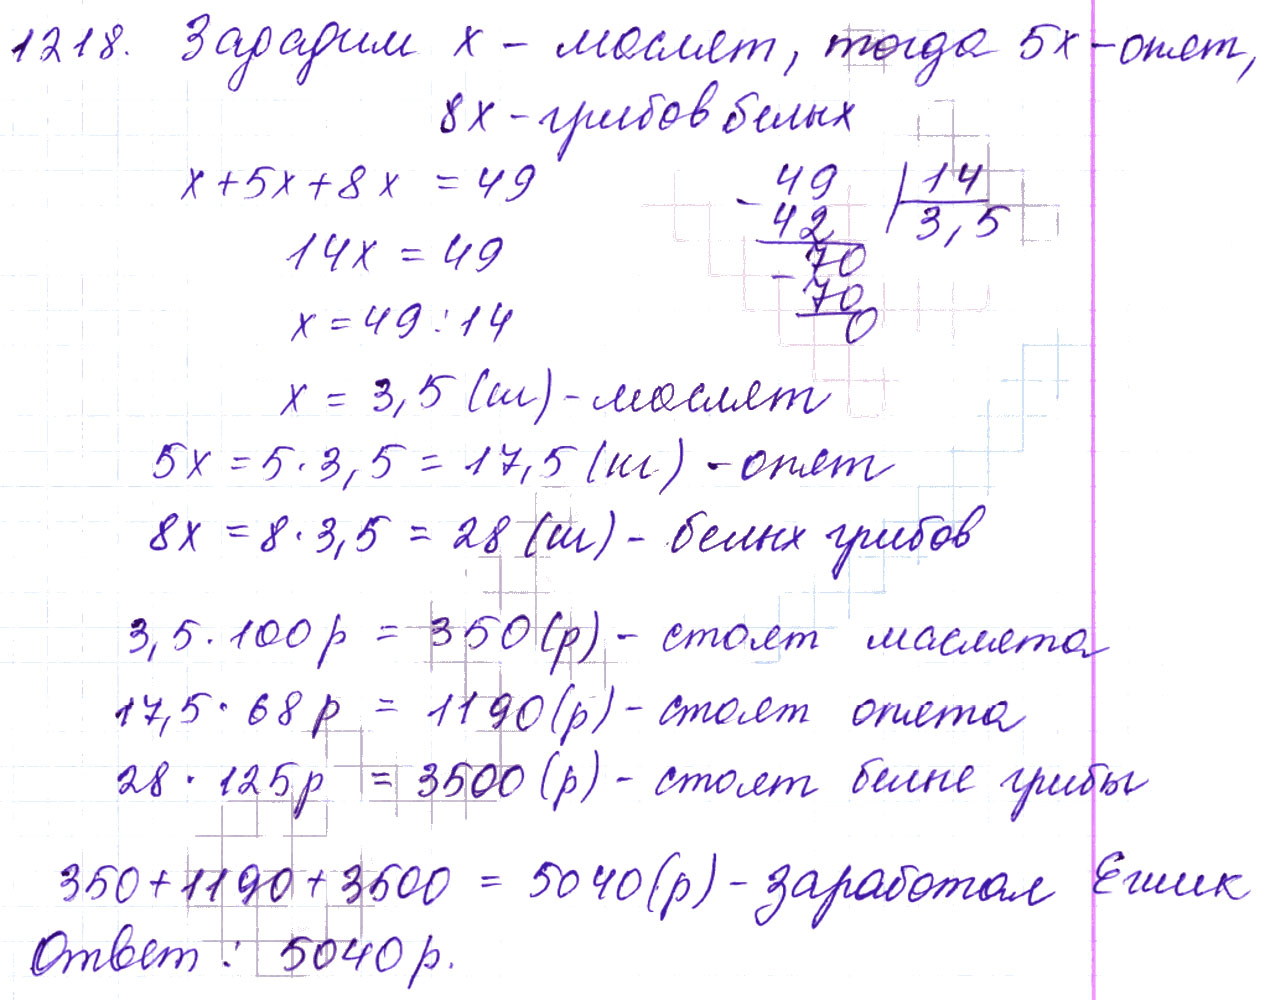 1218. Зададим х - маслят, тогда 5х - опят,
8х - грибов белых
х + 5х + 8х = 49
14х = 49
х = 49 : 14
49 | 14
- 42 3,5
70
- 70
0
х = 3,5 (ш) - маслят
5х = 5 · 3,5 = 17,5 (ш) - опят
8х = 8 · 3,5 = 28 (ш) - белых грибов
3,5 · 100р = 350 (р) - стоят маслята
17,5 · 68 р = 1190 (р) - стоят опята
28 · 125р = 3500 (р) - стоят белые грибы
350 + 1190 + 3500 = 5040 (р) - заработал Ёжик
Ответ : 5040 р.